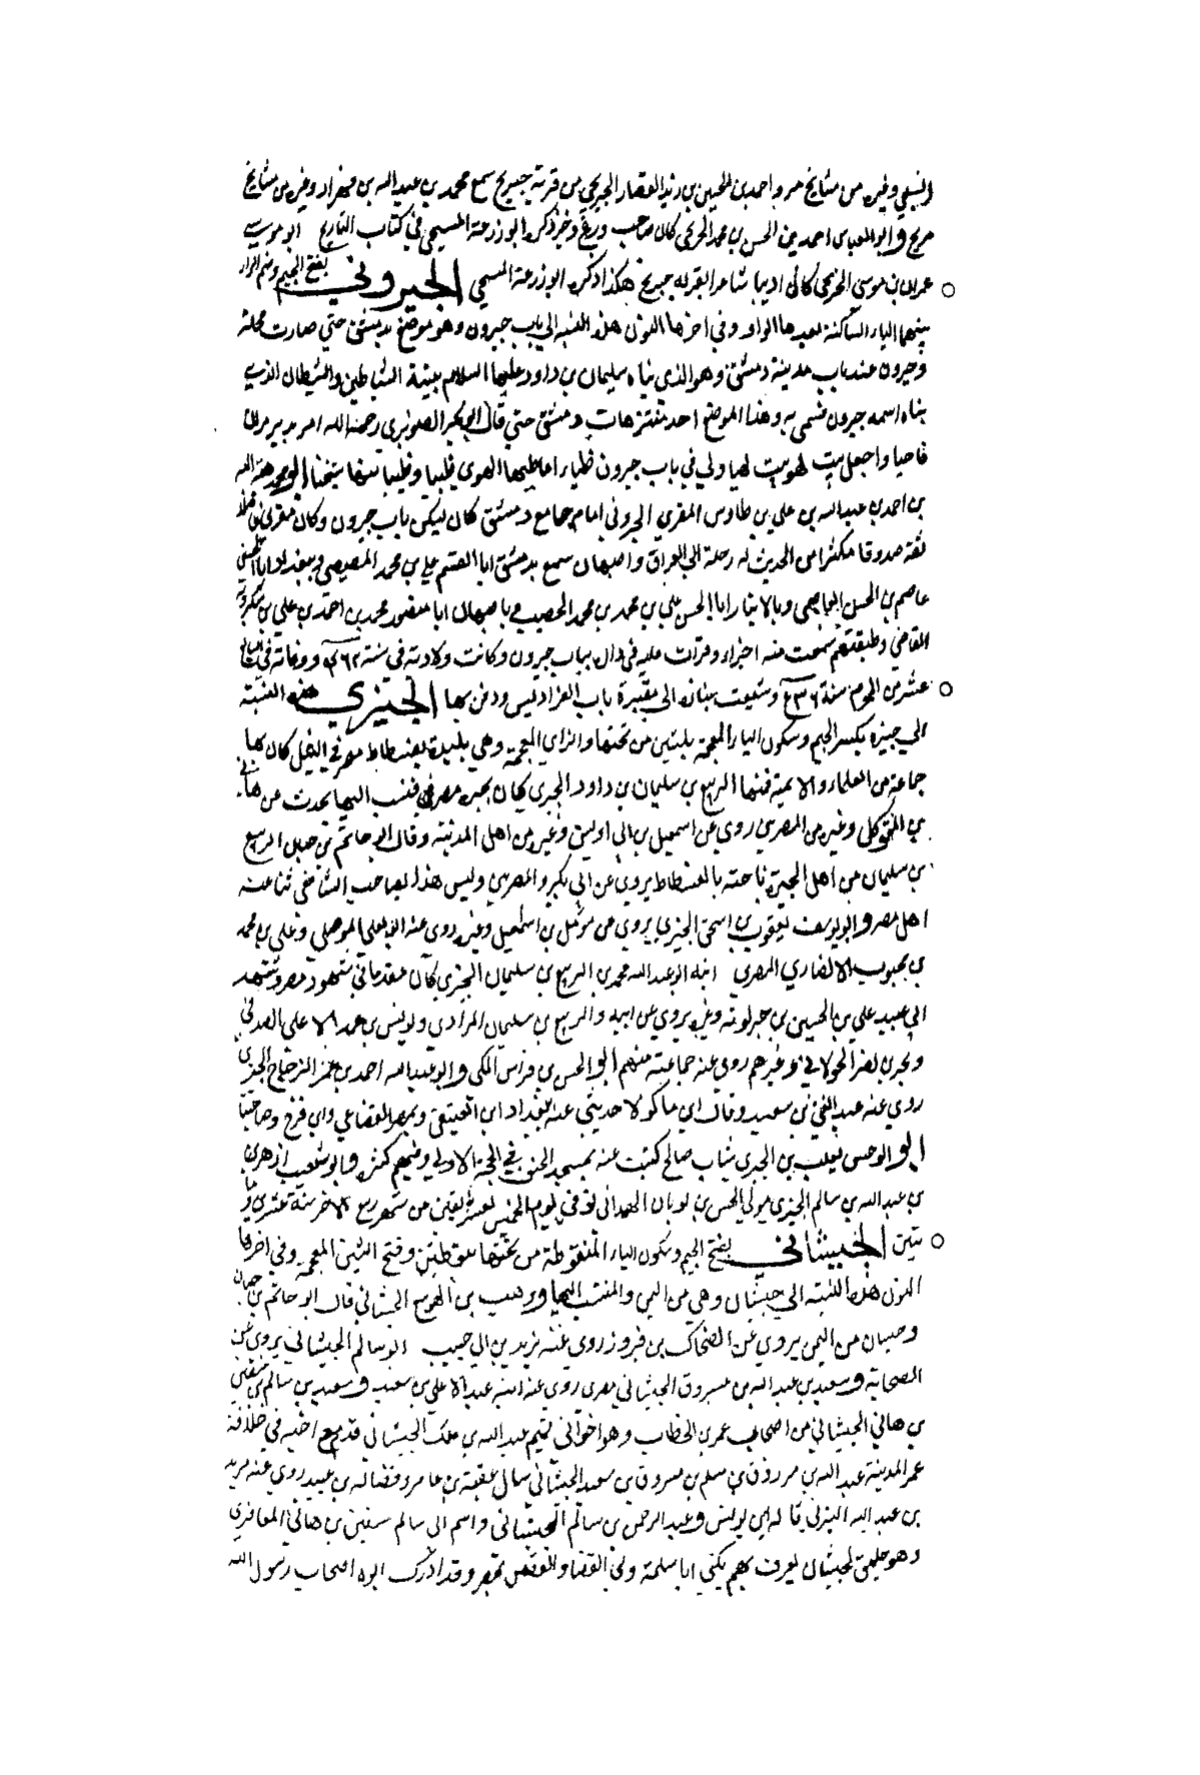 النسفي وغيره من مشايخ مرو احمد بن الحسين بن زيد القصار الجيرنجي من قرية جيرنج سمع محمد بن عبد الله بن قهزاد وغيره من مشايخ
مرو وابو العباس احمد بن الحسن بن محمد الجيرنجي كان صاحب ذكره ابو زرعة السبخي في كتاب التاريخ ابو موسى
عمران بن موسى الجيرنجي كان اديبا شاعرا بقرية جيرنج هكذا ذكره ابو زرعة السبخي الجيروني بفتح الجيم وضم الراء
بينهما الياء الساكنة بعدها الواو وفي اخرها النون هذه النسبة الى باب جيرون وهو موضع بدمشق حتى صارت محلة
وجيرون عند باب مدينة دمشق وهو الذي بناه سليمان بن داود عليهما السلام بنته الشياطين والشيطان الذي
بناه اسمه جيرون فسمى به وهذا الموضع احد متنزهات دمشق حتى قال ابو بكر الصنوبري رحمه الله امر بدير مران
فاحيا واجعل بيت لهوي بيت لهيا ولي في باب جيرون ظباء اعاطيها الهوى ظبيا وظبيا شيخنا ابو محمد هبة الله
بن احمد بن عبد الله بن علي بن طاوس المقرى الجيروني امام جامع دمشق كان يسكن باب جيرون وكان مقريا فاضلا
ثقة صدوقا مكثرا من الحديث له رحلة الى العراق واصبهان سمع بدمشق ابا القسم علي بن محمد المصيصي وببغداد ابا الحسين
عاصم بن الحسن العاصمي وبالانبار ابا الحسن علي بن محمد بن محمد الخطيب وباصبهان ابا منصور محمد بن احمد بن علي بن شكرويه
القاضي وطبقتهم سمعت منه اجزاء وقرات عليه في داره بباب جيرون وكانت ولادته في سنة ٤٦٢ ووفاته في
عشر من المحرم سنة ٥٣٦ وشيعت جنازته الى مقبرة باب الفراديس ودفن بها الجيزي هذه النسبة
الى جيزة بكسر الجيم وسكون الياء المعجمة باثنتين من تحتها والزاي المعجمة وهي بليدة بفسطاط مصر في النيل كان بها
جماعة من العلماء والائمة فمنها الربيع بن سليمان بن داود الجيزي كان بجيزة مصر فنسب اليها يحدث عن هاني
بن المتوكل وغيره من المصريين روى عن اسمعيل بن ابي اويس وغيره من اهل المدينة وقال ابو حاتم بن حبان الربيع
بن سليمان من اهل الجيزة ناحية بالفسطاط يروى عن ابن بكير والمصريين وليس هذا بصاحب الشافعي ثنا عنه
اهل مصر وابو يوسف يعقوب بن اسحق الجيزي يروي عن مؤمل بن اسمعيل وغيره روى عنه ابو يعلى الموصلي وعلي بن محمد
بن الانصاري المصري ابنه ابو عبد الله محمد بن الربيع بن سليمان الجيزي كان مقدما في شهود مصر وشهد
ابي عبيد علي بن الحسين بن حربويه وغيره يروي عن ابيه والربيع بن سليمان المرادي ويونس بن عبد الاعلى الصدفي
وبحر بن نصر الخولاني وغيرهم روى عنه جماعة منهم ابو الحسن بن فراس المكي وابو عبد الله احمد بن عمر الزجاج الجيزي
روى عنه عبد الغني بن سعيد وقال ابن ماكولا حدثني عنه ببغداد ابن العتيقي وبمصر القضاعي وابن فرج وصاحبنا
ابو الحسن ثعلب بن الجيزي شاب صالح كتبت عنه بمسجد الخيف في الحجة الاولى ومنهم كثرة وابو شعيب ازهر بن
بن عبد الله بن سالم الجيزي مولى الحسن بن ثوبان الهمداني توفي يوم الخميس لعشر بقين من شهر ربيع الاخر سنة عشرين وما
تين الجيشاني بفتح الجيم وسكون الياء المنقوطة من تحتها بنقطتين وفتح الشين المعجمة وفي اخرها
النون هذه النسبة الى جيشان وهي من اليمن والمنتسب اليها وهب بن الجيشاني قال ابو حاتم بن حبان
وجيشان من اليمن يروي عن الضحاك بن فيروز روى عنه يزيد بن ابي حبيب ابو سالم الجيشاني يروي عن
الصحابة وسعيد بن عبد الله بن مسروق الجيشاني مصري روى عنه ابنه عبد الاعلى بن سعيد وسعيد بن سالم بن سفين
بن هاني الجيشاني من اصحاب عمر بن الخطاب وهو اخو ابي تميم عبد الله بن ملك الجيشاني قدم مع اخيه في خلافة
عمر المدينة عبد الله بن مرزوق بن مسلم بن مسروق بن سعد الجيشاني سال عقبة بن عامر وفضالة بن عبيد روى عنه مرثد
بن عبد الله اليزني قاله ابن يونس وعبد الرحمن بن سالم الجيشاني واسم ابي سالم سفين بن هاني المعافري
وهو حليف لجيشان يعرف بهم يكنى ابا سلمة ولي القضا والقصص بمصر وقد ادرك ابوه اصحاب رسول الله